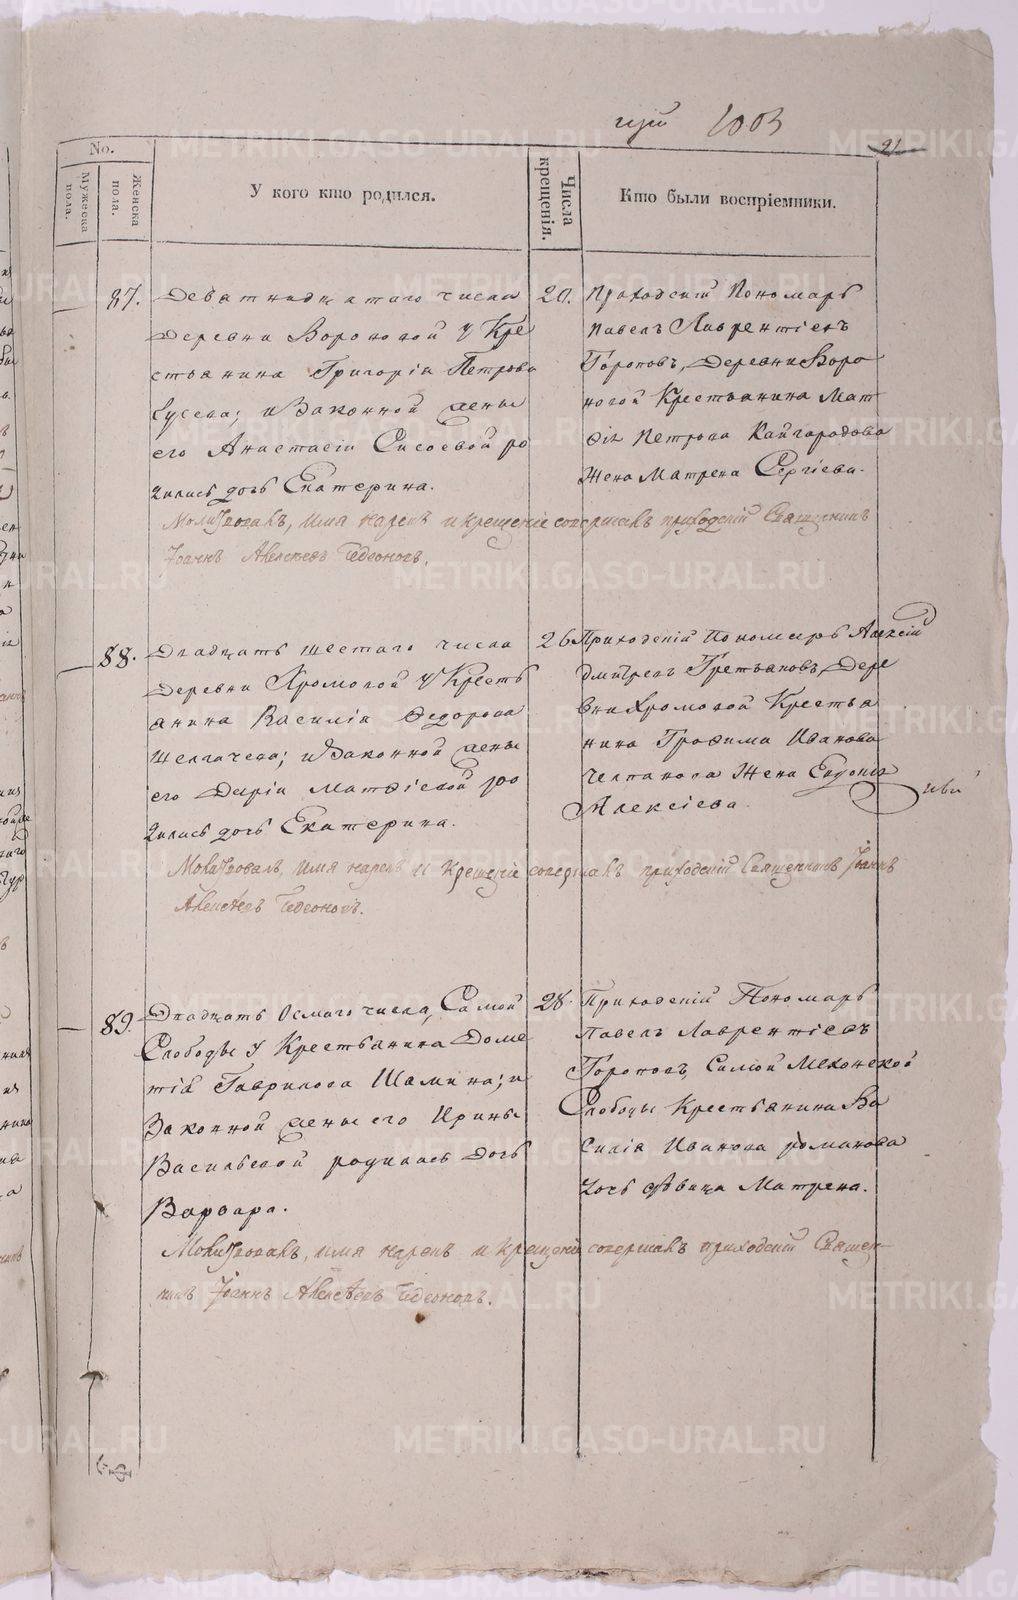 1003
21
No.
Мужеска пола.
Женска пола.
У кого кто родился.
Числа крещенія.
Кто были воспріемники.
87.
Деватнадцатаго числа
деревни Вороновой у Кре
стьянина Григорія Петрова
Гусева; и Законной жены
его Анастасіи Сисоевой ро
дилась дочь Екатерина.
20.
Приходскій Пономарь
Павелъ Лаврентіевъ
Торопов, деревни Воро
новой Крестьянина Мат
фія Петрова Кайгородова
Жена Матрена Сергіева.
Молитвовалъ, имя нарекъ и крещеніе совершалъ приходскій Священникъ
Іоаннъ Алексѣевъ Гедеоновъ.
88.
Двадцать шестаго числа
деревни Хромовой у Кресть
янина Василія Федорова
Щелгачева; и Законной жены
его Даріи Матфіевой ро
дилась дочь Екатерина.
26
Приходскій Пономарь Алексій
Дмитріев Третьяковъ, Дере
вни Хромовой Крестья
нина Трофима Иванова
Челпанова Жена Евдокія
Алексіева.
Молитвовалъ, имя нарекъ и Крещеніе совершалъ приходскій Священникъ Іоаннъ
Алексѣевъ Гедеоновъ.
89.
Двадцать Осмаго числа, Самой
Слободы у Крестьянина Доме
тія Гаврилова Шамина; и
Законной жены его Ирины
Васильевой родилась Дочь
Варвара.
28.
Приходскій Пономарь
Павелъ Лаврентіевъ
Тороповъ, Самой Мехонской
Слободы Крестьянина Ва
силія Иванова Романова
дочь дѣвица Матрена.
Молитвовалъ, имя нарекъ и крещеніе совершалъ приходскій Священ-
никъ Іоаннъ Алексѣевъ Гедеоновъ.
METRIKI.GASO-URAL.RU